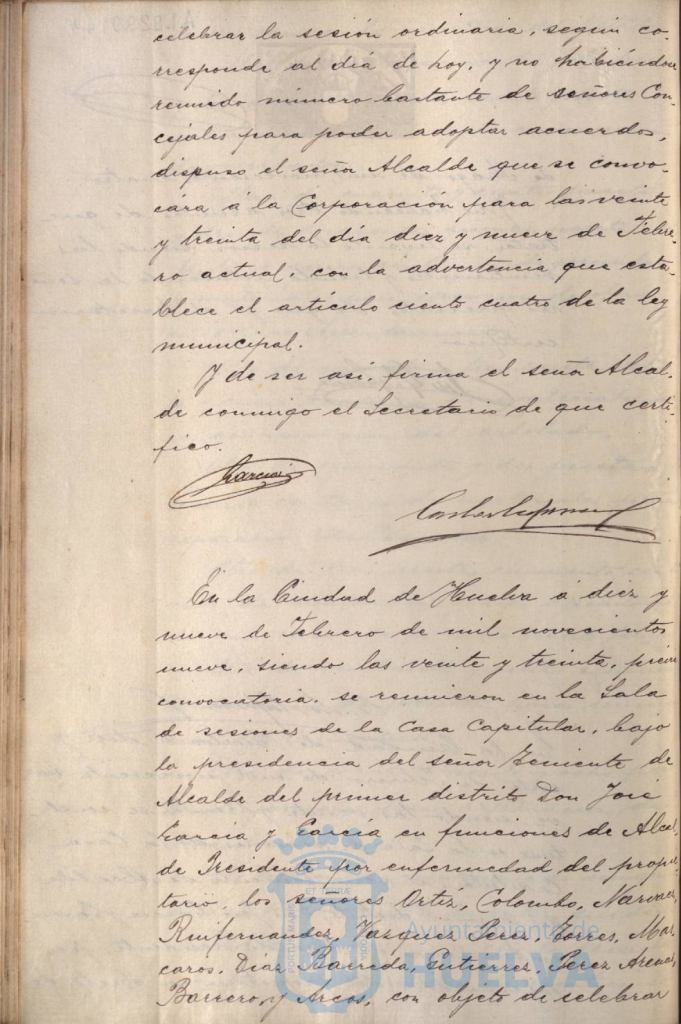 celebrar la sesión ordinaria, según co-
rresponde al día de hoy, y no habiéndose
reunido número bastante de señores Con-
cejales para poder adoptar acuerdos,
dispuso el señor Alcalde que se convo-
cára á la Corporación para las veinte
y treinta del día diez y nueve de Febre-
ro actual, con la advertencia que esta-
blece el artículo ciento cuatro de la ley
municipal.
Y de ser así, firma el señor Alcal-
de conmigo el Secretario de que certi-
fico.
García
En la Ciudad de Huelva á diez y
nueve de Febrero de mil novecientos
nueve, siendo las veinte y treinta, previa
convocatoria, se reunieron en la Sala
de sesiones de la Casa Capitular, bajo
la presidencia del señor Teniente de
Alcalde del primer distrito Don José
García y García en funciones de Alcal-
de Presidente por enfermedad del propie-
tario, los señores Ortíz, Colombo, Narvaez,
Ruifernandez, Vazquez Perez, Torres, Mas-
caros, Diaz Barreda, Gutierrez, Perez Arenas,
Barrero, y Arcos, con objeto de celebrar
Ayuntamiento de
HUELVA